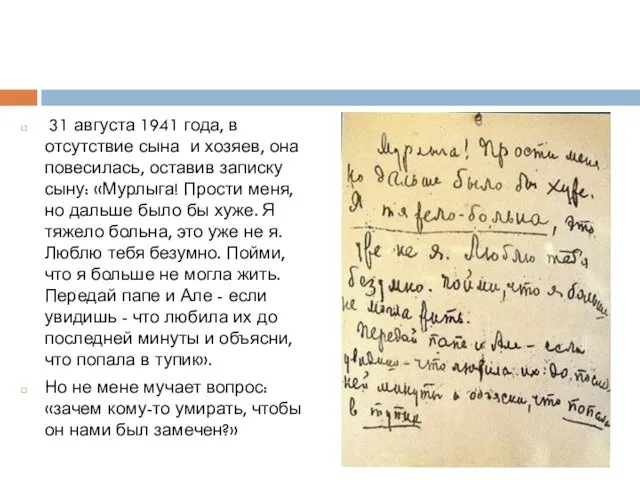 31 августа 1941 года, в
отсутствие сына и хозяев, она
повесилась, оставив записку
сыну: «Мурлыга! Прости меня,
но дальше было бы хуже. Я
тяжело больна, это уже не я.
Люблю тебя безумно. Пойми,
что я больше не могла жить.
Передай папе и Але - если
увидишь - что любила их до
последней минуты и объясни,
что попала в тупик».
Но не мене мучает вопрос:
«зачем кому-то умирать, чтобы
он нами был замечен?»
Мурлыга! Прости меня
но дальше было бы хуже.
Я тяжело-больна, это
уже не я. Люблю тебя
безумно. Пойми, что я больше
не могла жить.
Передай папе и Але – если
увидишь – что любила их до послед
ней минуты и объясни, что попала
в тупик